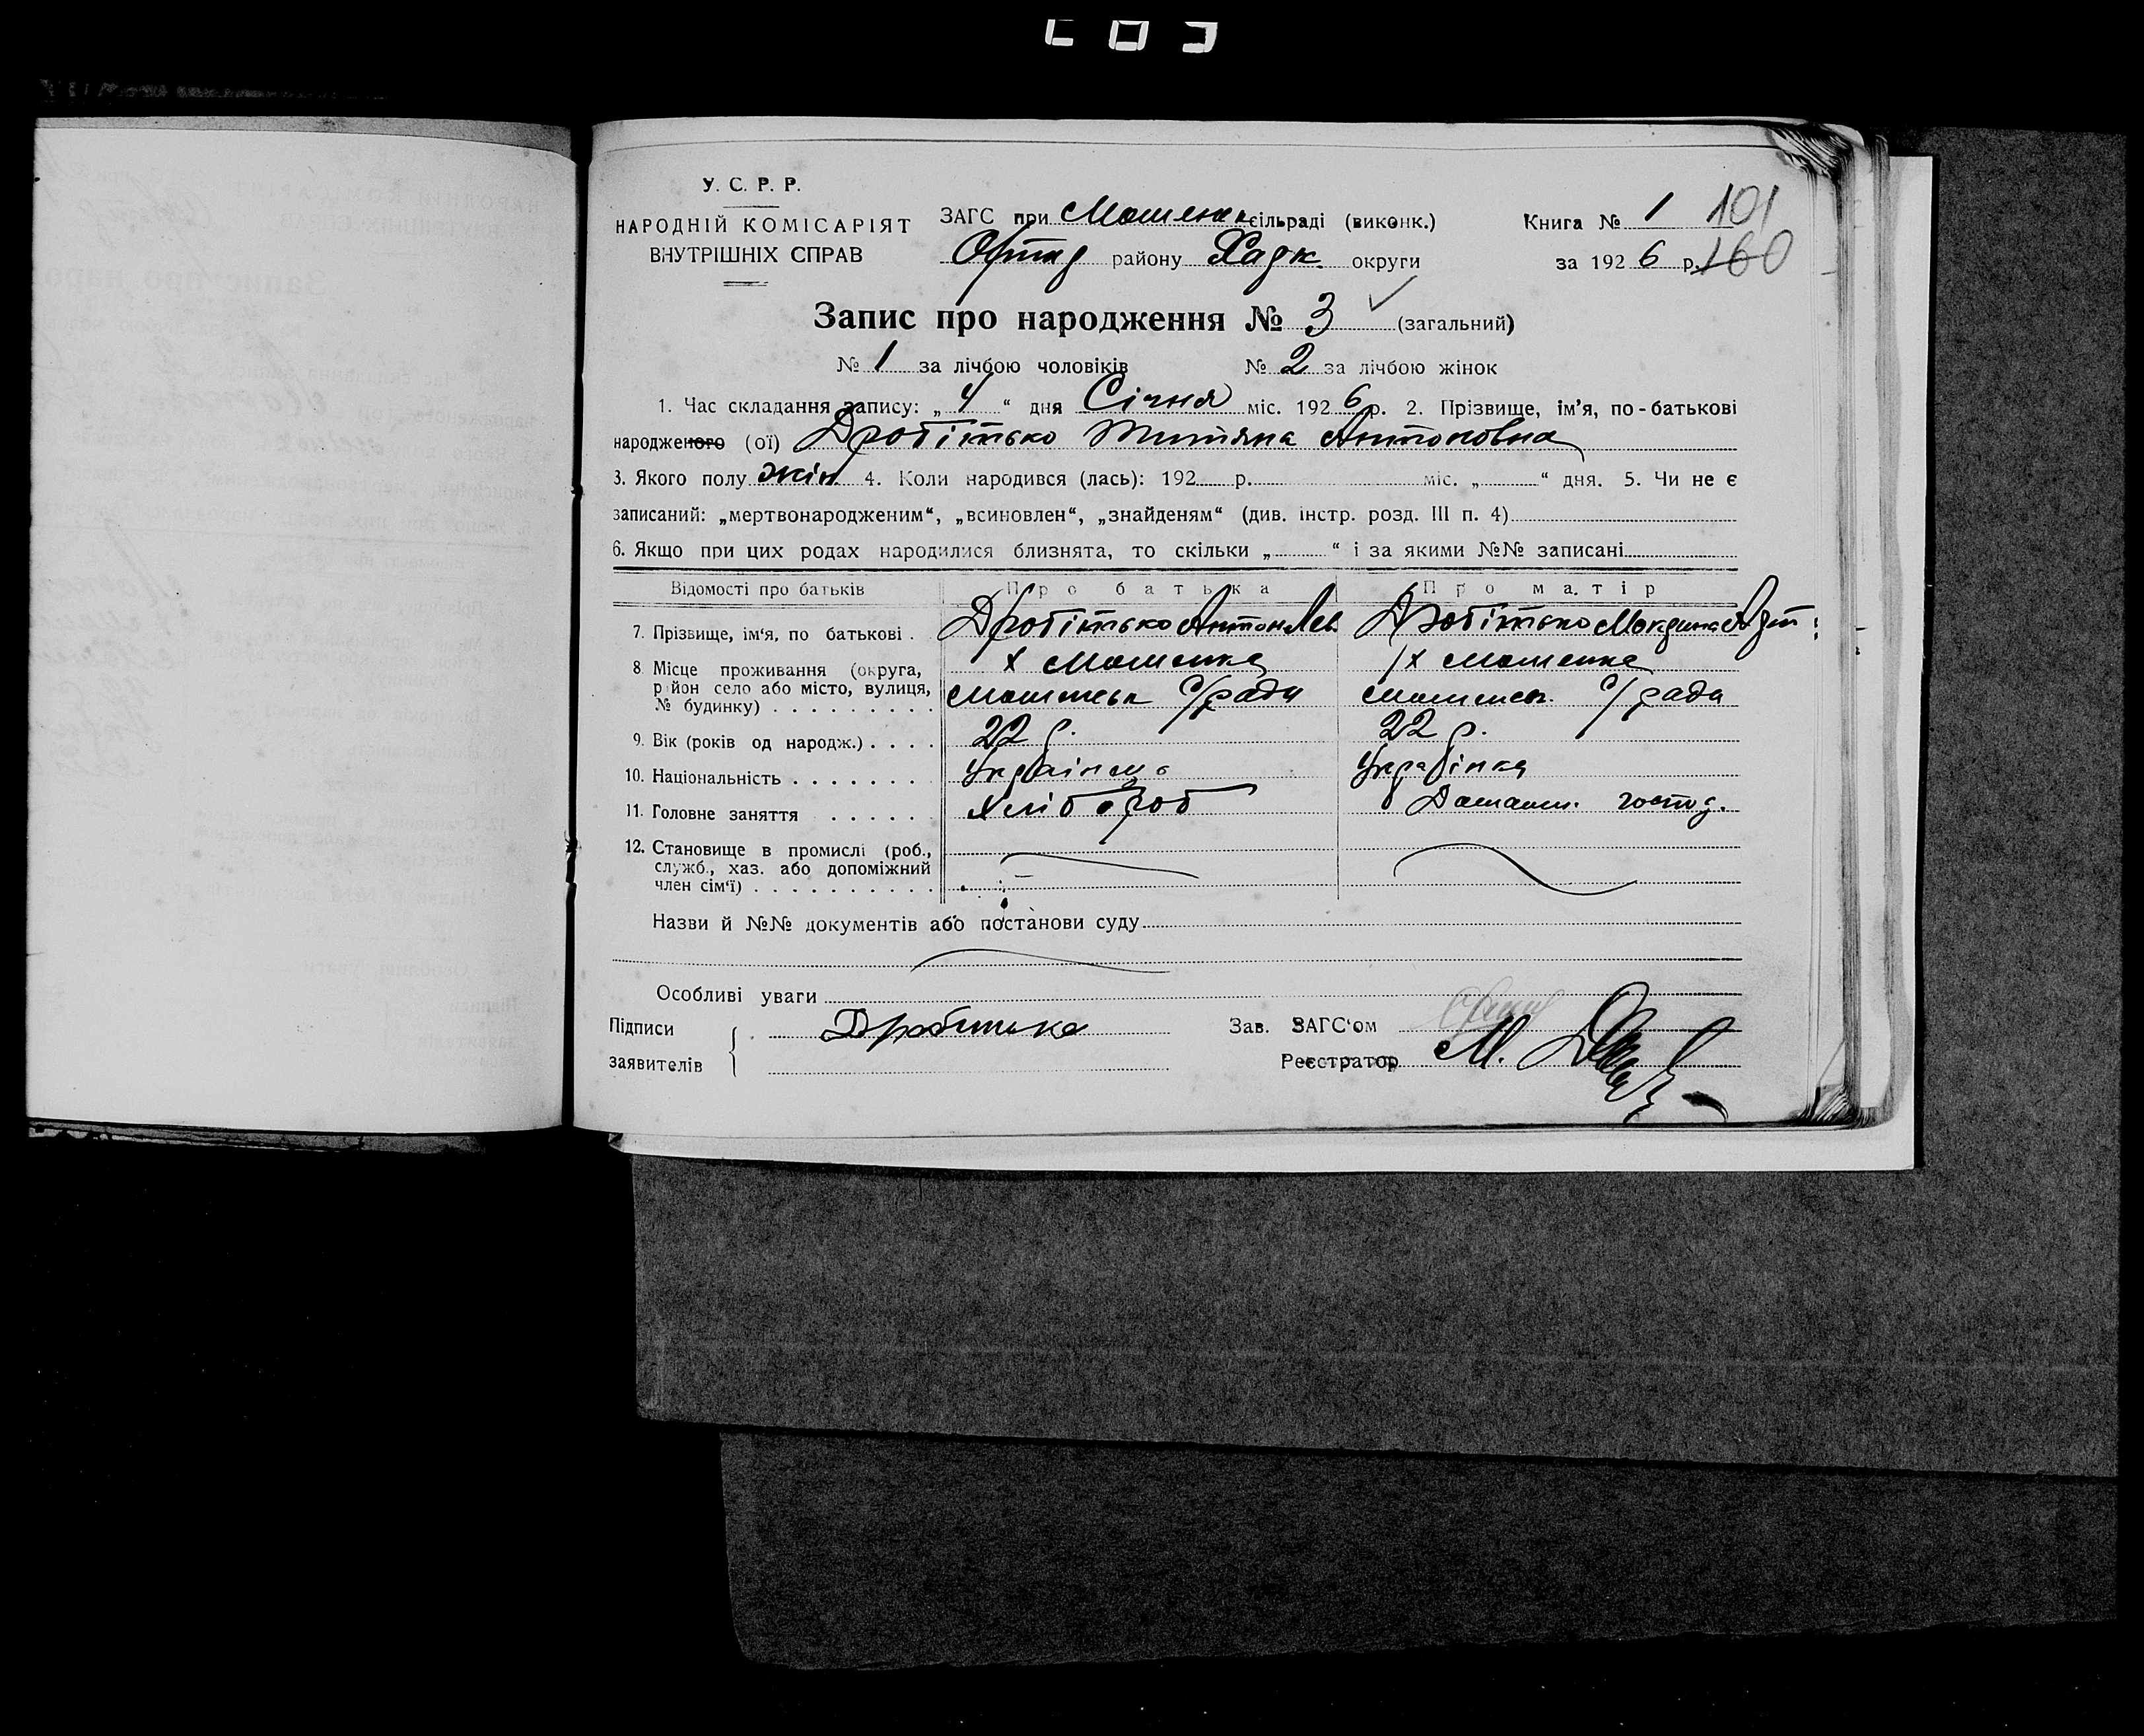 У. С. Р. Р.
НАРОДНІЙ КОМІСАРІЯТ
ВНУТРІШНІХ СПРАВ
ЗАГС при Мошенк сільраді (виконк.)
району округи
Книга № 1 101
за 192 6 р. 160
Запис про народження № 3 (загальний)
№ 1 за лічбою чоловіків № 2 за лічбою жінок
1. Час складання запису: „ 4 “ дня Січня міс. 192 6 р. 2. Прізвище, ім’я, по-батькові
народженого (ої) Дробітько Титяна Антоновна
3. Якого полу жін 4. Коли народився (лась): 192 р. міс. „ “ дня. 5. Чи не є
записаний: „мертвонародженим“, „всиновлен“, „знайденям“ (див. інстр. розд. III п. 4)
6. Якщо при цих родах народилися близнята, то скільки „ “ і за якими №№ записані
Відомості про батьків Про батька Про матір
7. Прізвище, ім‘я, по батькові . Дробітько Антон Дробітько
8. Місце проживання (округа, х Мошенка х Мошенка
район село або місто, вулиця, с/ради с/рада
№ будинку) . . . . . . . . .
9. Вік (років од народж.) . . . . 22 р. 22 р.
10. Національність . . . . . . . Українець Українка
11. Головне заняття . . . . . . Хлібороб Домашн. госпд.
12. Становище в промислі (роб.,
служб., хаз. або допоміжний
член сім‘ї) . . . . . . . . . .
Назви й №№ документів або постанови суду
Особливі уваги
Підписи Дробитько Зав. ЗАГС‘ом
заявителів Реєстратор М.